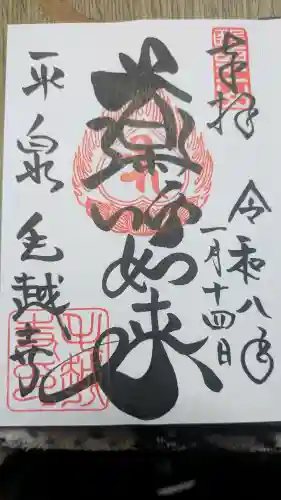 奉拝
令和八年
一月十四日
薬師如来
平泉 毛越寺